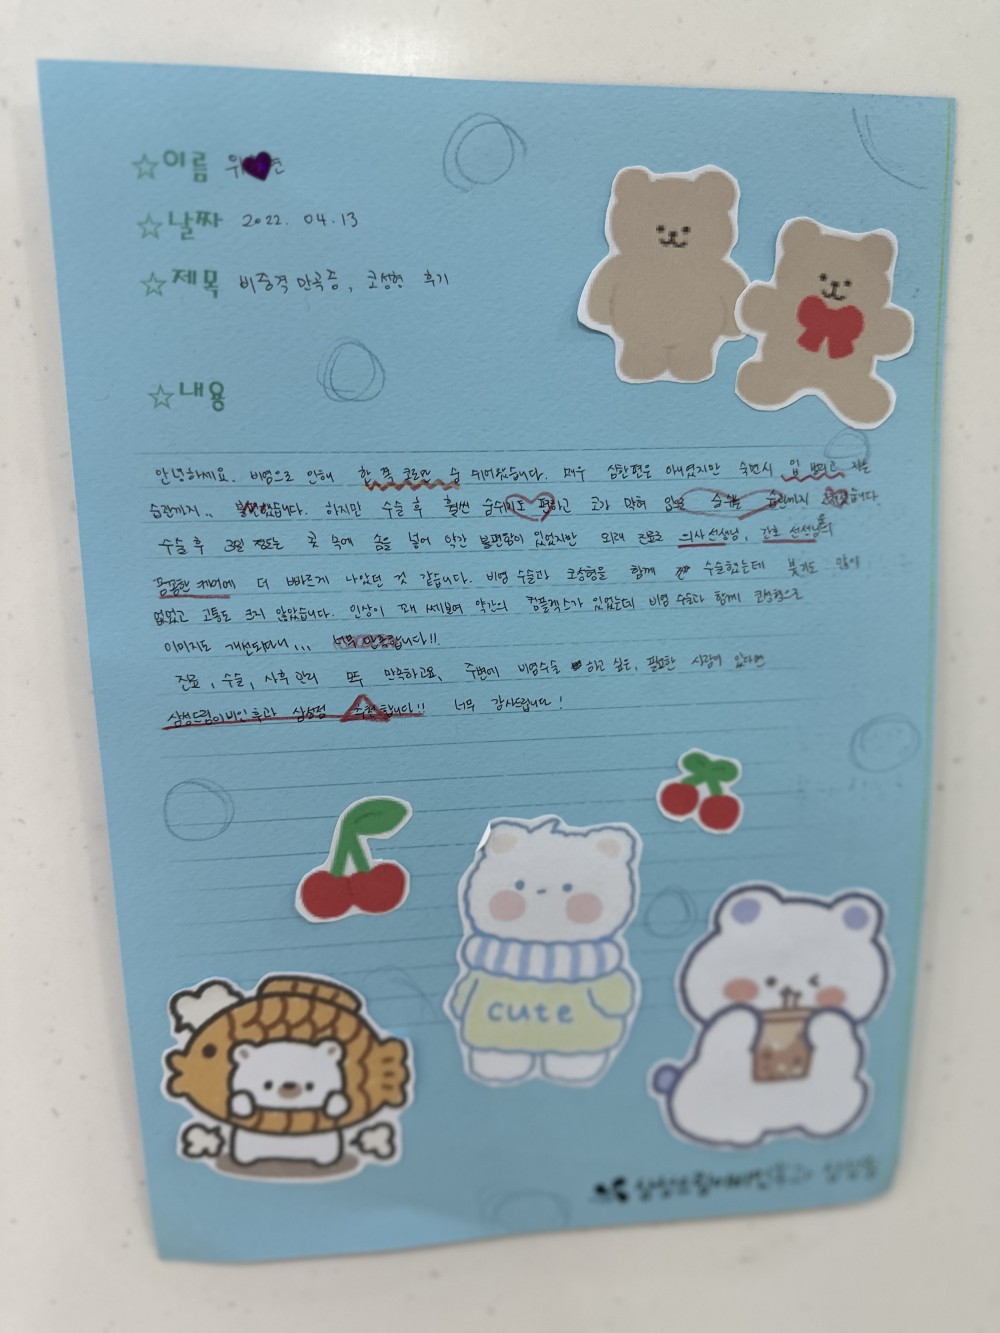 ☆이름 위♥연
☆날짜 2022. 04. 13
☆제목 비중격 만곡증, 코성형 후기
☆내용
안녕하세요. 비염으로 인해 한 쪽 코로만 숨 쉬어왔습니다. 매우 심한편은 아니였지만 수면시 입 벌리고 자는
습관까지.. 불편했습니다. 하지만 수술 후 훨씬 숨쉬기도 편하고 코가 막혀 입으로 숨쉬는 습관까지 습니다.
수술 후 3일 정도는 콧 속에 솜을 넣어 약간 불편함이 있었지만 외래 진료로 의사선생님, 간호 선생님의
꼼꼼한 케어에 더 빠르게 나았던 것 같습니다. 비염 수술과 코성형을 함께 수술했는데 붓기도 많이
없었고 고통도 크지 않았습니다. 인상이 쎄보여 약간의 컴플렉스가 있었는데 비염 수술과 함께 코성형으로
이미지도 개선되다니... 너무 만족합니다!!
진료, 수술, 사후 관리 모두 만족하고요, 주변에 비염수술 하고 싶은, 필요한 사람이 있다면
삼성드림이비인후과 삼성점 추천합니다!! 너무 감사드립니다!
cute
삼성드림이비인후과 삼성점